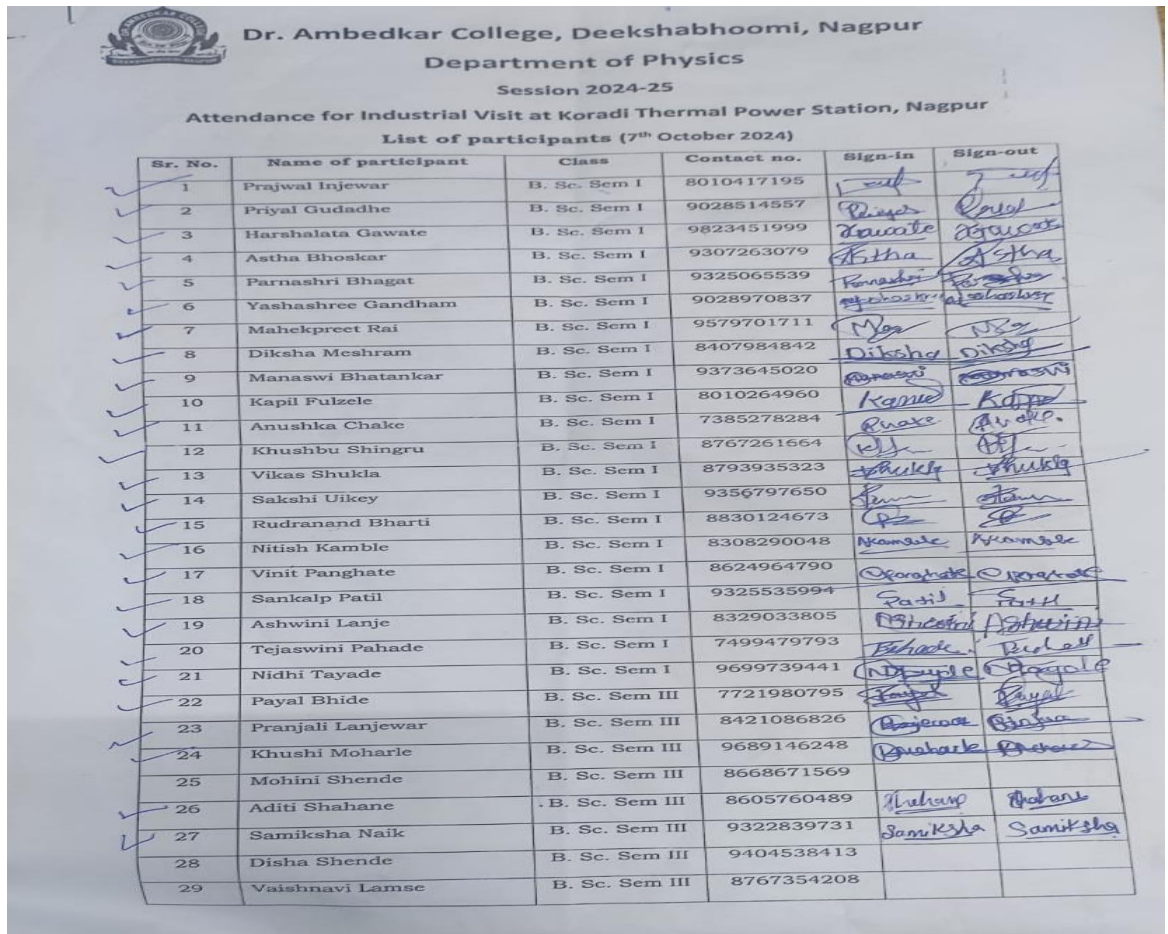 Dr. Ambedkar College, Deekshabhoomi, Nagpur
Department of Physics
Session 2024-25
Attendance for Industrial Visit at Koradi Thermal Power Station, Nagpur
List of participants (7th October 2024)
Sr. No. Name of participant Class Contact no. Sign-in Sign-out
1 Prajwal Injewar B. Sc. Sem I 8010417195
2 Priyal Gudadhe B. Sc. Sem I 9028514557
3 Harshalata Gawate B. Sc. Sem I 9823451999
4 Astha Bhoskar B. Sc. Sem I 9307263079 Astha Astha
5 Parnashri Bhagat B. Sc. Sem I 9325065539 Parnashri
6 Yashashree Gandham B. Sc. Sem I 9028970837
7 Mahekpreet Rai B. Sc. Sem I 9579701711
8 Diksha Meshram B. Sc. Sem I 8407984842 Diksha Diksha
9 Manaswi Bhatankar B. Sc. Sem I 9373645020
10 Kapil Fulzele B. Sc. Sem I 8010264960
11 Anushka Chake B. Sc. Sem I 7385278284
12 Khushbu Shingru B. Sc. Sem I 8767261664
13 Vikas Shukla B. Sc. Sem I 8793935323 Shukla Shukla
14 Sakshi Uikey B. Sc. Sem I 9356797650
15 Rudranand Bharti B. Sc. Sem I 8830124673
16 Nitish Kamble B. Sc. Sem I 8308290048 NKamble NKamble
17 Vinit Panghate B. Sc. Sem I 8624964790
18 Sankalp Patil B. Sc. Sem I 9325535994 Patil Patil
19 Ashwini Lanje B. Sc. Sem I 8329033805 Ashwini Ashwini
20 Tejaswini Pahade B. Sc. Sem I 7499479793
21 Nidhi Tayade B. Sc. Sem I 9699739441
22 Payal Bhide B. Sc. Sem III 7721980795 Payal Payal
23 Pranjali Lanjewar B. Sc. Sem III 8421086826
24 Khushi Moharle B. Sc. Sem III 9689146248
25 Mohini Shende B. Sc. Sem III 8668671569
26 Aditi Shahane B. Sc. Sem III 8605760489
27 Samiksha Naik B. Sc. Sem III 9322839731 Samiksha Samiksha
28 Disha Shende B. Sc. Sem III 9404538413
29 Vaishnavi Lamse B. Sc. Sem III 8767354208